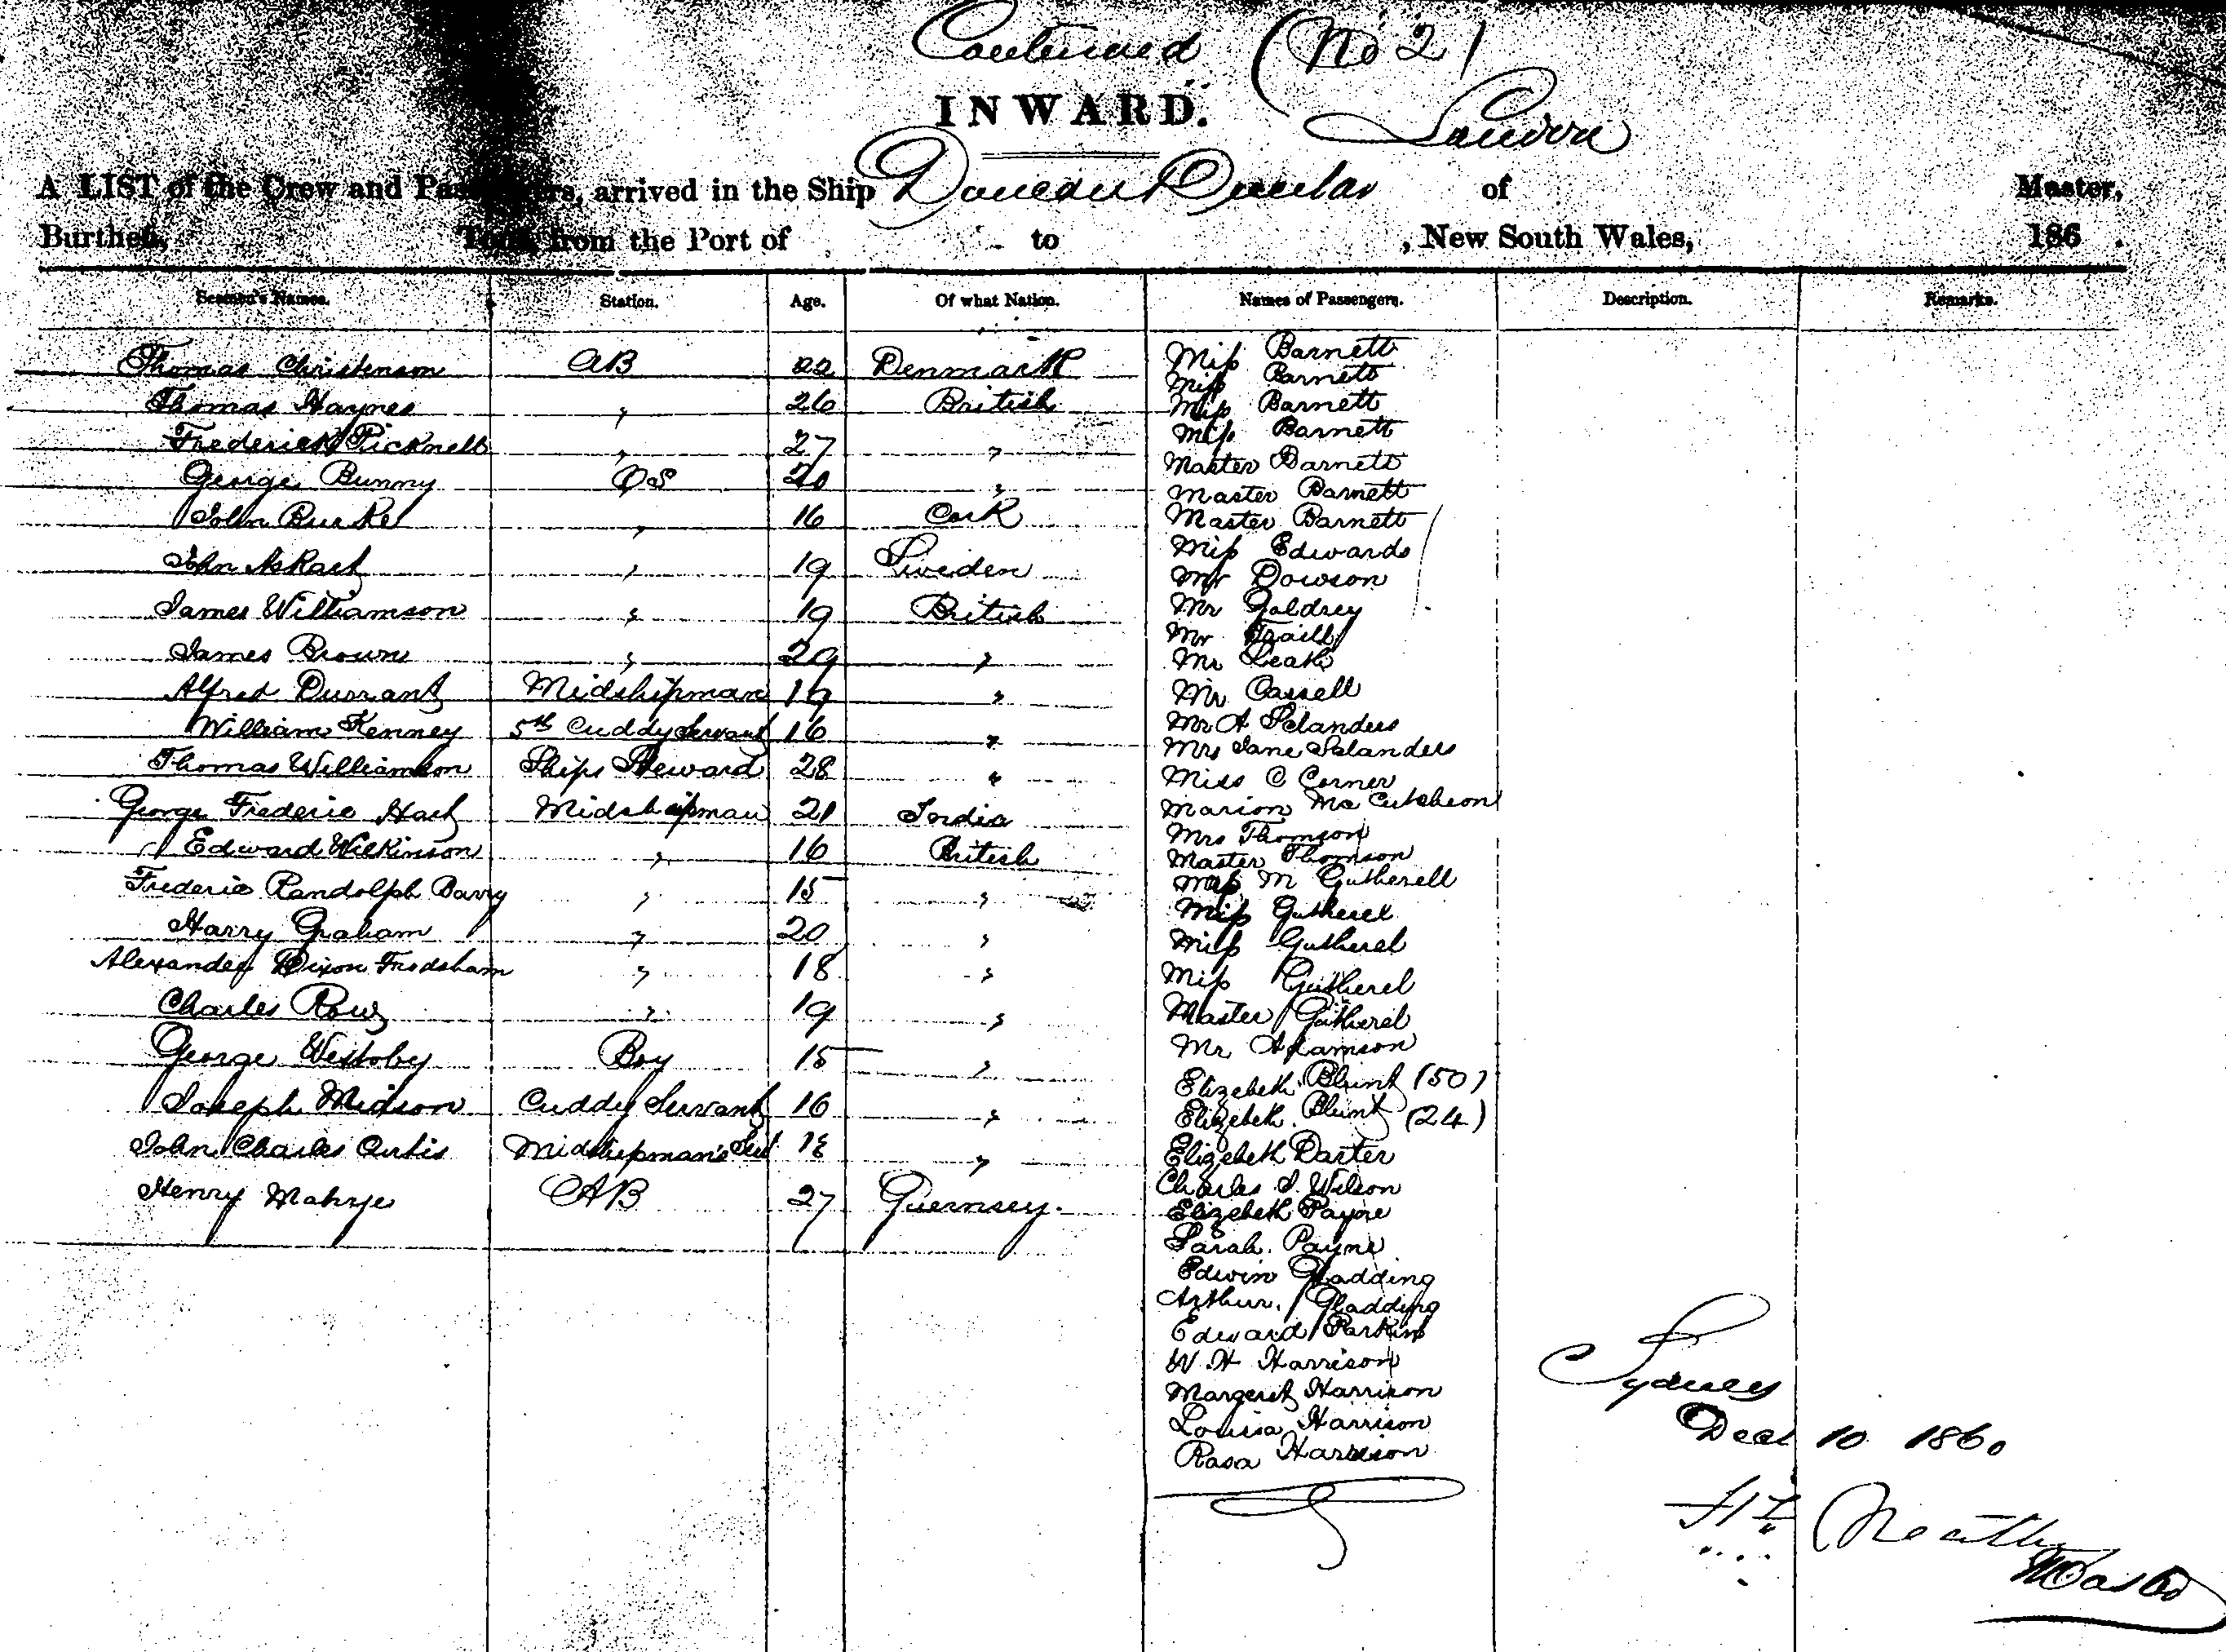 Continued (No 2)
INWARD. London
A LIST of the Crew and Passengers, arrived in the Ship Duncan Dunbar of Master,
Burthen, Tons, from the Port of to , New South Wales, 186 .
Seamen's Names. Station. Age. Of what Nation. Names of Passengers. Description. Remarks.
Thomas Christenson AB 22 Denmark
Thomas Haynes " 26 British
Frederick Picknell " 27 "
George Bunny OS 20 "
John Burke " 16 Cork
John " 19 Sweden
James Williamson " 19 British
James Brown " 29 "
Alfred Durrant Midshipman 19 "
William Kenney 5th Cuddy Servant 16 "
Thomas Williamson Ships Steward 28 "
George Frederic Midshipman 21 India
Edward Wilkinson " 16 British
Frederic Randolph Barry " 15 "
Harry Graham " 20 "
Alexander Dixon Frodsham " 18 "
Charles " 19 "
George Westoby Boy 15 "
Joseph Midson Cuddy Servant 16 "
John Charles Curtis Midshipman's 18 "
Henry Mahrye AB 27 Guernsey.
Miss Barnett
Miss Barnett
Miss Barnett
Miss Barnett
Master Barnett
Master Barnett
Master Barnett
Miss Edwards
Mr Dowson
Mr
Mr Traill
Mr Leath
Mr Cassell
Mr A Selanders
Mrs Jane Selanders
Miss C Corner
Marion McCutcheon
Mrs Thomson
Master Thomson
M Gutherell
Miss Gutherel
Miss Gutherel
Miss Gutherel
Master Gutherel
Mr Adamson
Elizebeth Blunt (50)
Elizebeth Blunt (24)
Elizebeth Darter
Charles J. Wilson
Elizebeth Payne
Sarah Payne
Edwin Gladding
Arthur Gladding
Edward Parkins
W. H Harrison
Margeret Harrison
Louisa Harrison
Rosa Harrison
Sydney
Decr 10 1860
Neatby
Master